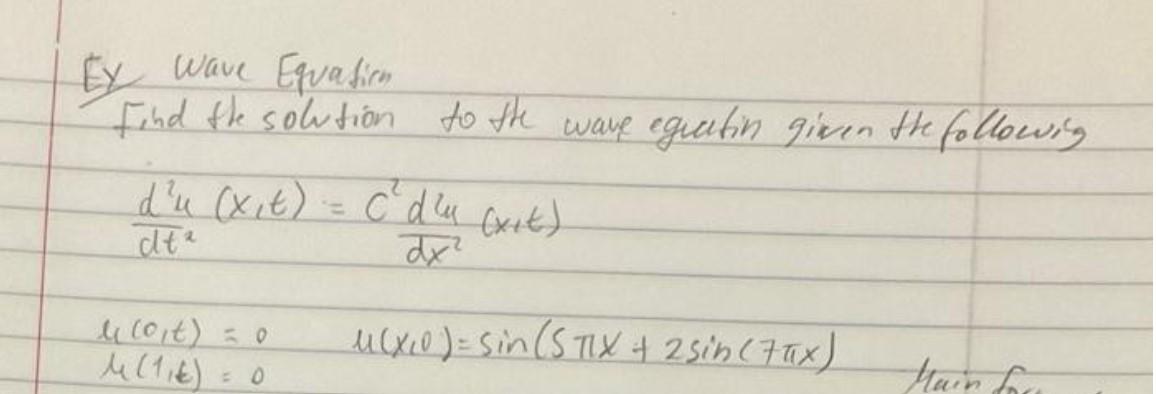 Ex Wave Equation
Find the solution to the wave equatin given the followig
d²u/dt² (x,t) = C² d²u/dx² (x,t)
u(0,t) = 0 u(x,0) = sin(5πx + 2sin(7πx)
u(1,t) = 0 Main